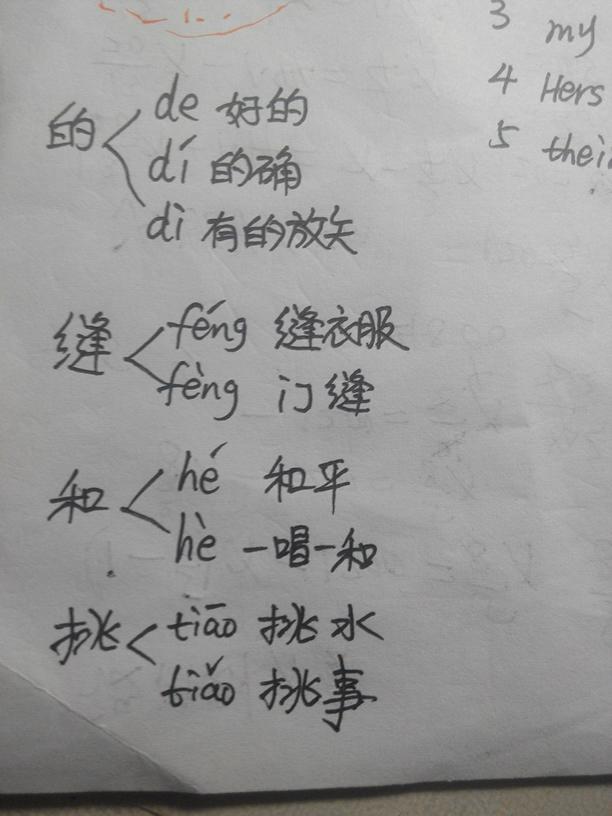 3 my
4 Hers
5 thei
的
de 好的
dí 的确
dì 有的放矢
缝
féng 缝衣服
fèng 门缝
和
hé 和平
hè 一唱一和
挑
tiāo 挑水
tiǎo 挑事